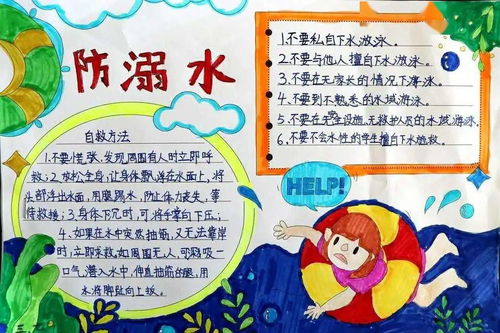 防溺水
自救方法
1.不要慌张,发现周围有人时立即呼
救;2.放松全身,让身体飘浮在水面上,将
头部浮出水面,用腿踢水,防止体力丧失,等
待救援;3.身体下沉时,可将手掌向下压;
4.如果在水中突然抽筋,又无法靠岸
时,立即求救,如周围无人,可深吸一
口气,潜入水中,伸直抽筋的腿,用
木将脚趾向上扳。
1.不要私自下水游泳。
2.不要与他人擅自下水游泳。
3.不要在无家长的情况下游泳。
4.不要到不熟悉的水域游泳。
5.不要在无安全设施,无救护人员的水域游泳。
6.不要不会水性的学生擅自下水施救。
HELP!